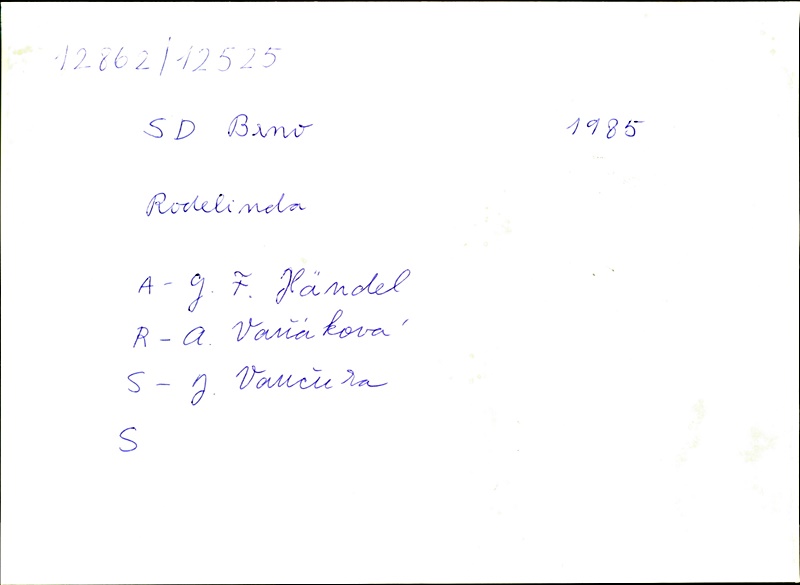 12862/12525
SD Brno 1985
Rodelinda
A - G. F. Händel
R - A. Vaňáková
S - J. Vančura
S